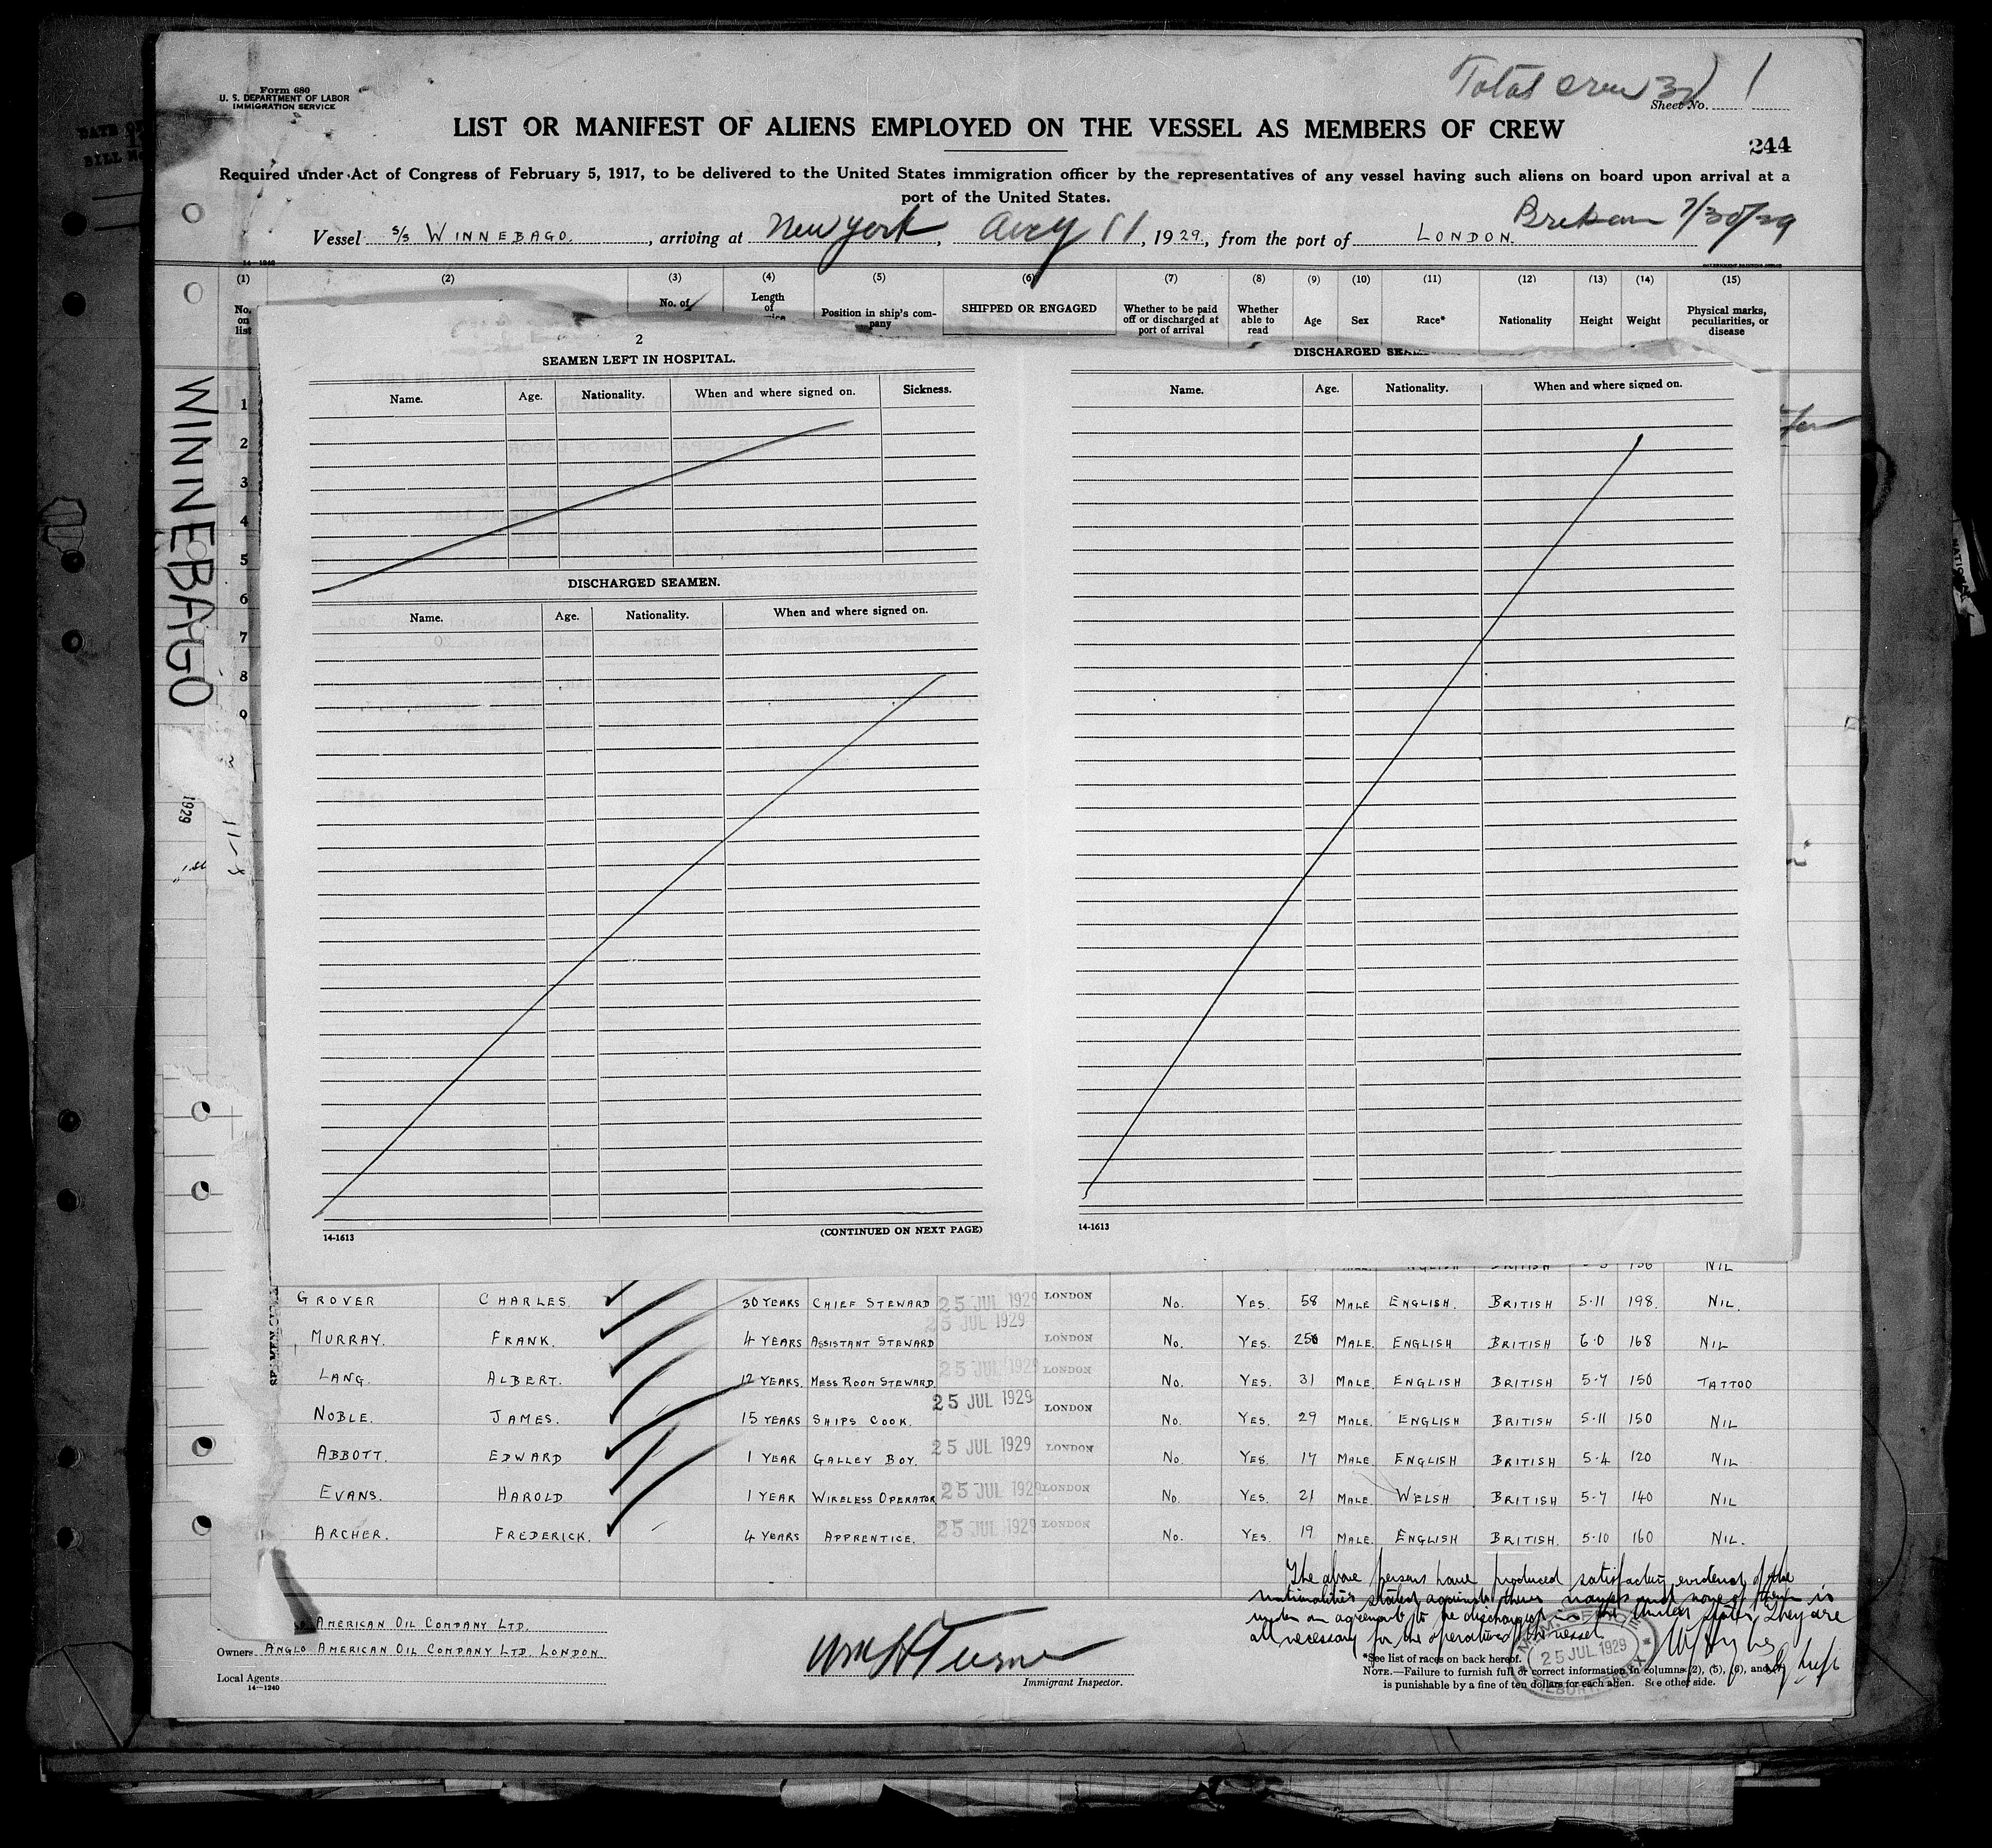 Form 680
U. S. DEPARTMENT OF LABOR
IMMIGRATION SERVICE
Total crew
Sheet No. 1
LIST OR MANIFEST OF ALIENS EMPLOYED ON THE VESSEL AS MEMBERS OF CREW
244
Required under Act of Congress of February 5, 1917, to be delivered to the United States immigration officer by the representatives of any vessel having such aliens on board upon arrival at a
port of the United States.
Vessel S/S WINNEBAGO., arriving at New York, Aug 11, 1929, from the port of LONDON. 7/30/29
(1) (2) (3) (4) (5) (6) (7) (8) (9) (10) (11) (12) (13) (14) (15)
No. on list
No. of
Length of
Position in ship's company
SHIPPED OR ENGAGED
Whether to be paid off or discharged at port of arrival
Whether able to read
Age
Sex
Race*
Nationality
Height
Weight
Physical marks, peculiarities, or disease
WINNEBAGO
1
2
3
4
5
6
7
8
9
1929
2
SEAMEN LEFT IN HOSPITAL.
Name. Age. Nationality. When and where signed on. Sickness.
DISCHARGED SEAMEN.
Name. Age. Nationality. When and where signed on.
(CONTINUED ON NEXT PAGE)
14-1613
DISCHARGED
Name. Age. Nationality. When and where signed on.
14-1613
NIL
GROVER CHARLES. 30 YEARS CHIEF STEWARD 25 JUL 1929 LONDON No. YES. 58 MALE ENGLISH. BRITISH 5·11 198. NIL.
MURRAY. FRANK. 4 YEARS ASSISTANT STEWARD 25 JUL 1929 LONDON No. YES. MALE. ENGLISH BRITISH 6·0 168 NIL
LANG. ALBERT. 12 YEARS. MESS ROOM STEWARD 25 JUL 1929 LONDON No. YES. 31 MALE. ENGLISH BRITISH 5·7 150 TATTOO
NOBLE. JAMES. 15 YEARS SHIPS COOK. 25 JUL 1929 LONDON No. YES. 29 MALE. ENGLISH BRITISH 5·11 150 NIL
ABBOTT. EDWARD 1 YEAR GALLEY BOY. 25 JUL 1929 LONDON No. YES. 17 MALE. ENGLISH BRITISH 5·4 120 NIL
EVANS. HAROLD 1 YEAR WIRELESS OPERATOR 25 JUL 1929 LONDON No YES. 21 MALE. WELSH BRITISH 5·7 140 NIL
ARCHER. FREDERICK. 4 YEARS APPRENTICE. 25 JUL 1929 LONDON No. YES. 19 MALE. ENGLISH BRITISH. 5·10 160 NIL.
The above persons have produced satisfactory evidence of the
nationalities stated against their names and none of them is
under an agreement to be discharged in the United States. They are
all necessary for the operation of the vessel
25 JUL 1929
AMERICAN OIL COMPANY LTD.
Owners ANGLO AMERICAN OIL COMPANY LTD. LONDON
Local Agents
14—1240
Wm H Turner
Immigrant Inspector.
*See list of races on back hereof.
NOTE.—Failure to furnish full or correct information in columns (2), (5), (6), and
is punishable by a fine of ten dollars for each alien. See other side.